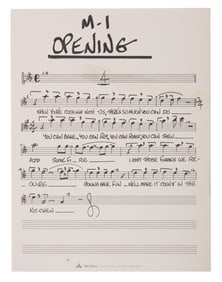 M-1
OPENING
4
WHEN YOU'RE COOKIN' WITH US, THERE'S SO MUCH YOU CAN DO
YOU CAN BAKE, YOU CAN FRY, YOU CAN ROAST, YOU CAN STEW
ADD SOME FI - RE LIGHT THOSE FLAMES WE RE-
QUIRE GONNA HAVE FUN WE'LL MAKE IT COUNT IN THIS
KIT-CHEN